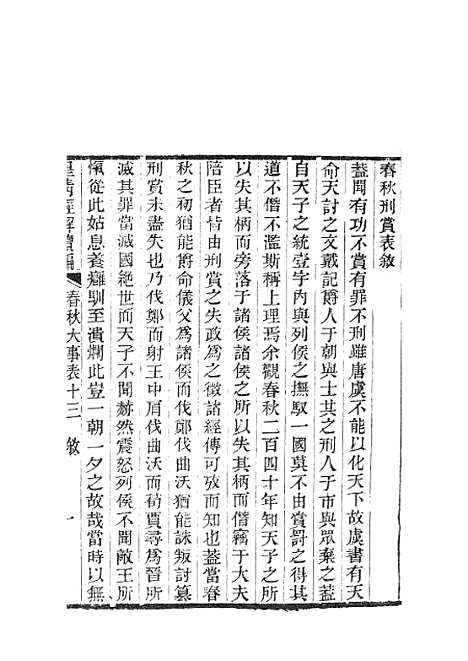 春秋刑賞表敘
蓋聞有功不賞有罪不刑雖唐虞不能以化天下故虞書有天
命天討之文戴記爵人于朝與士共之刑人于市與眾棄之蓋
自天子之統壹宇內與列侯之撫馭一國莫不由賞罰之得其
道不僭不濫斯稱上理焉余觀春秋二百四十年知天子之所
以失其柄而旁落于諸侯諸侯之所以失其柄而僭竊于大夫
陪臣者皆由刑賞之失政為之徵諸經傳可攷而知也蓋當春
秋之初猶能爵命儀父為諸侯而伐鄭伐曲沃猶能誅叛討篡
刑賞未盡失也乃伐鄭而射王中肩伐曲沃而荀賈尋為晉所
滅其罪當滅國絕世而天子不聞赫然震怒列侯不聞敵王所
愾從此姑息養癰馴至潰爛此豈一朝一夕之故哉當時以無
皇清經解續編 春秋大事表十三 敘 一